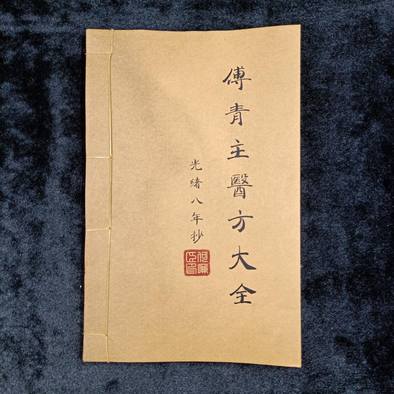 傅青主醫方大全
光緒八年抄